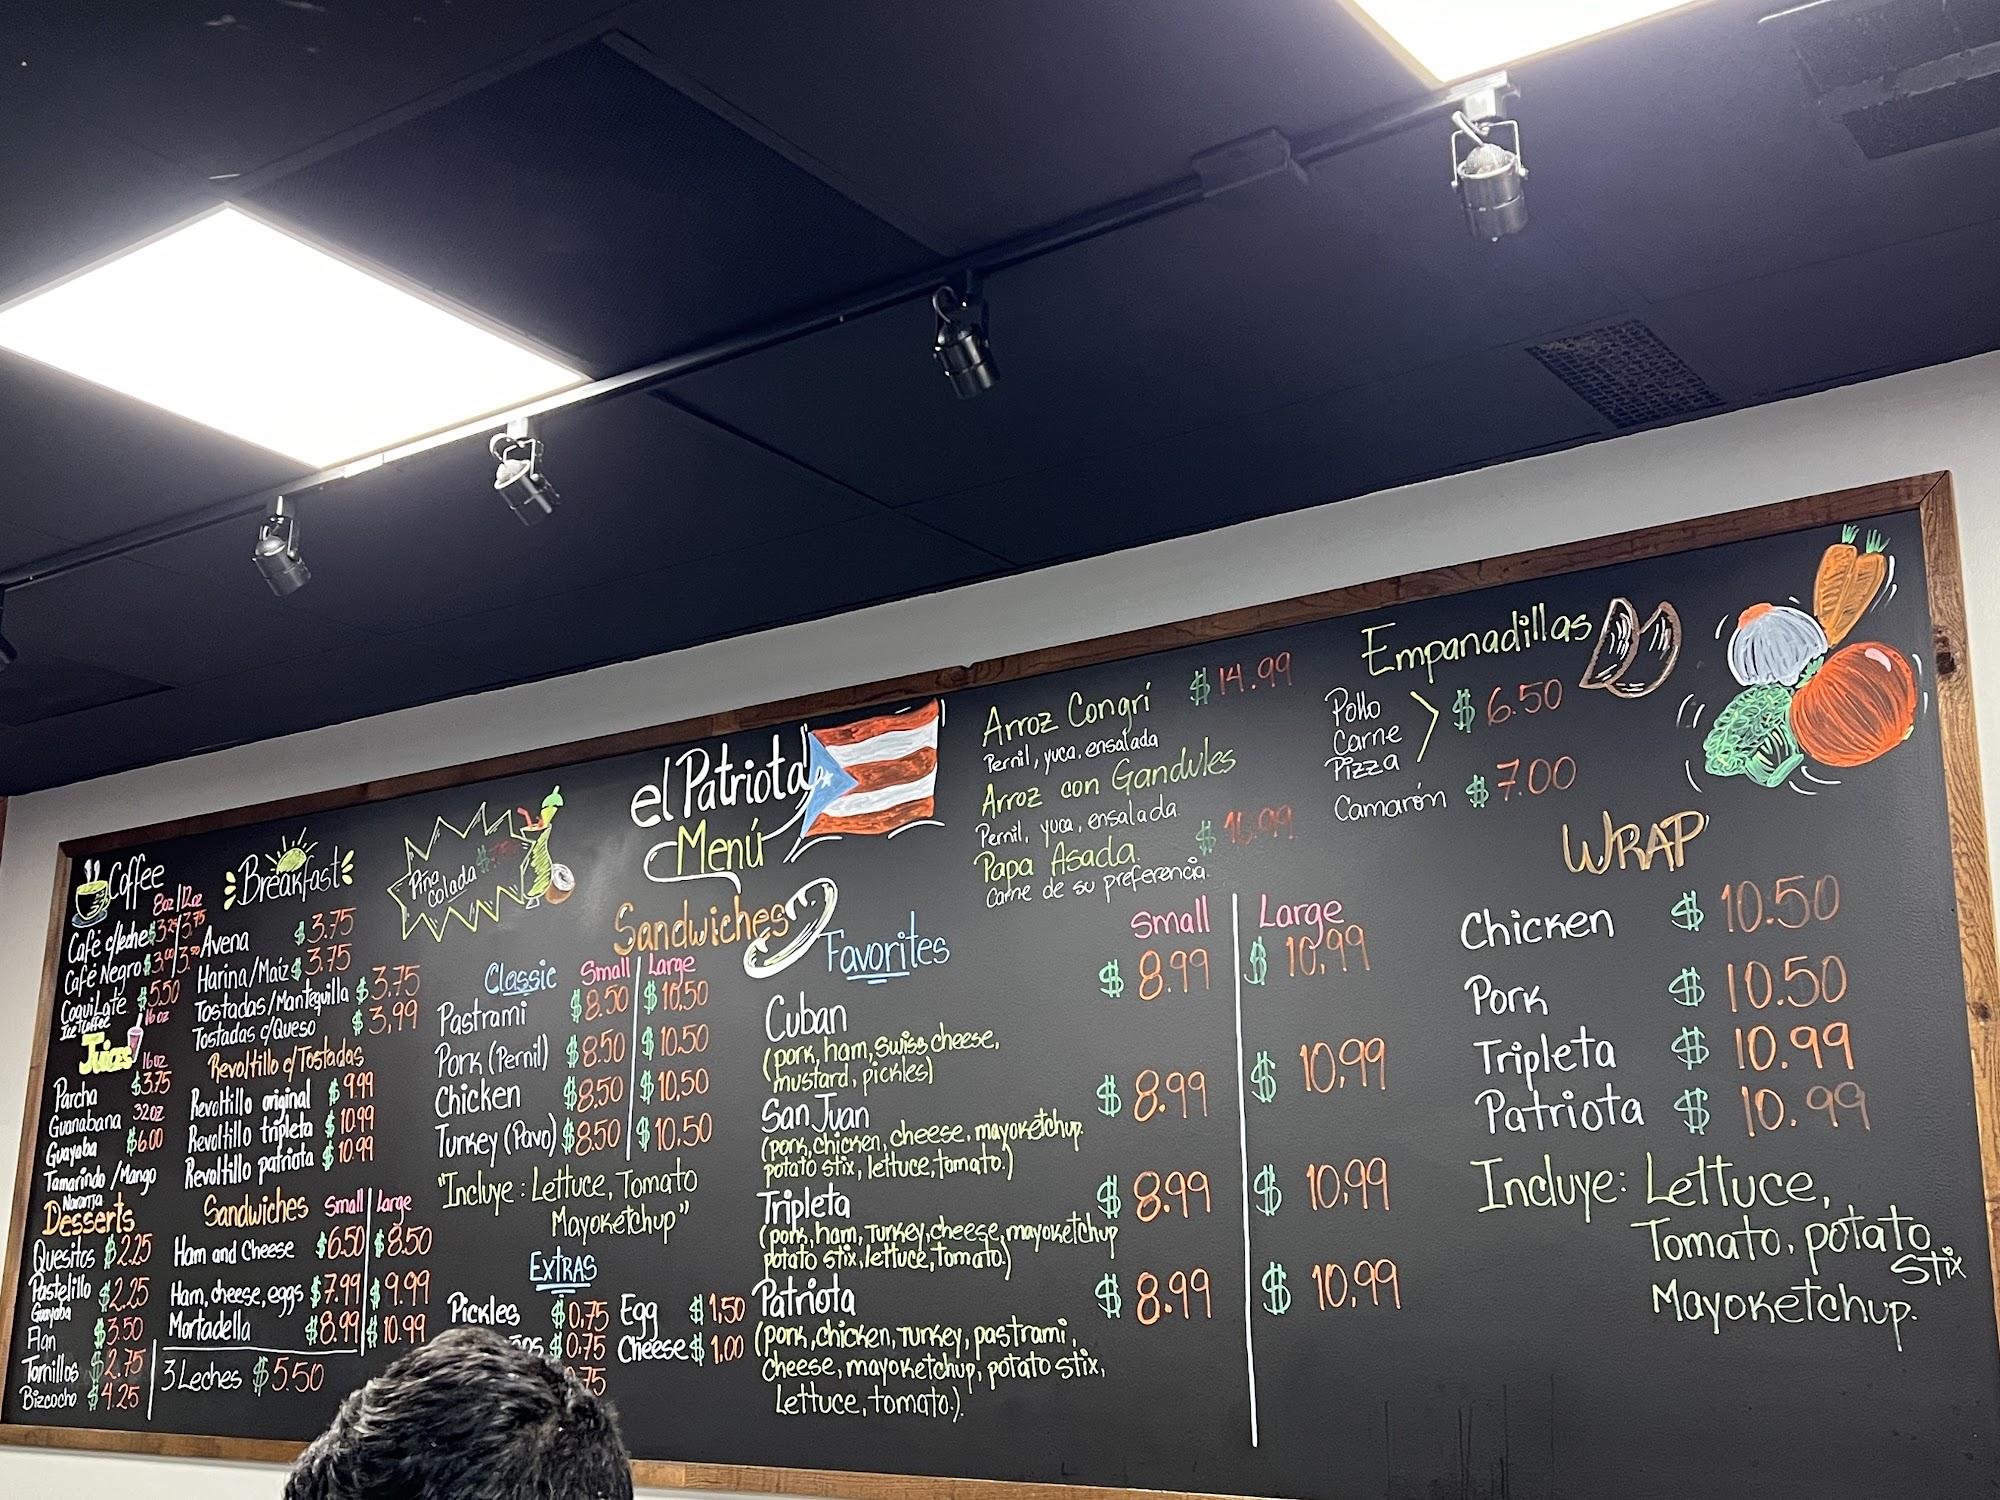 Coffee
8oz/12oz
Café c/leche $3.25/3.75
Café Negro $3.00/3.50
CoquiLate $5.50
Ice Coffee 16 oz
Juices
16 oz
Parcha $3.75
Guanabana 32oz
Guayaba $6.00
Tamarindo/Mango
Naranja
Desserts
Quesitos $2.25
Pastelillo $2.25
Guayaba
Flan $3.50
Tornillos $2.75
Bizcocho $4.25
3 Leches $5.50
Breakfast
Avena $3.75
Harina/Maíz $3.75
Tostadas/Mantequilla $3.75
Tostadas c/Queso $3.99
Revoltillo c/Tostadas
Revoltillo original $9.99
Revoltillo tripleta $10.99
Revoltillo patriota $10.99
Sandwiches Small Large
Ham and Cheese $6.50 $8.50
Ham, cheese, eggs $7.99 $9.99
Mortadella $8.99 $10.99
Piña
colada $
el Patriota
Menú
Sandwiches
Classic Small Large
Pastrami $8.50 $10.50
Pork (Pernil) $8.50 $10.50
Chicken $8.50 $10.50
Turkey (Pavo) $8.50 $10.50
"Incluye: Lettuce, Tomato
Mayoketchup"
Extras
Pickles $0.75 Egg $1.50
$0.75 Cheese $1.00
75
Favorites Small Large
Cuban $8.99 $10.99
(pork, ham, swiss cheese,
mustard, pickles)
San Juan $8.99 $10.99
(pork, chicken, cheese, mayoketchup.
potato stix, lettuce, tomato.)
Tripleta $8.99 $10.99
(pork, ham, turkey, cheese, mayoketchup
potato stix, lettuce, tomato.)
Patriota $8.99 $10.99
(pork, chicken, turkey, pastrami,
cheese, mayoketchup, potato stix,
Lettuce, tomato.).
Arroz Congrí $14.99
Pernil, yuca, ensalada
Arroz con Gandules
Pernil, yuca, ensalada
Papa Asada $10.99
carne de su preferencia
Empanadillas
Pollo
Carne $6.50
Pizza
Camarón $7.00
WRAP
Chicken $10.50
Pork $10.50
Tripleta $10.99
Patriota $10.99
Incluye: Lettuce,
Tomato, potato
Stix
Mayoketchup.